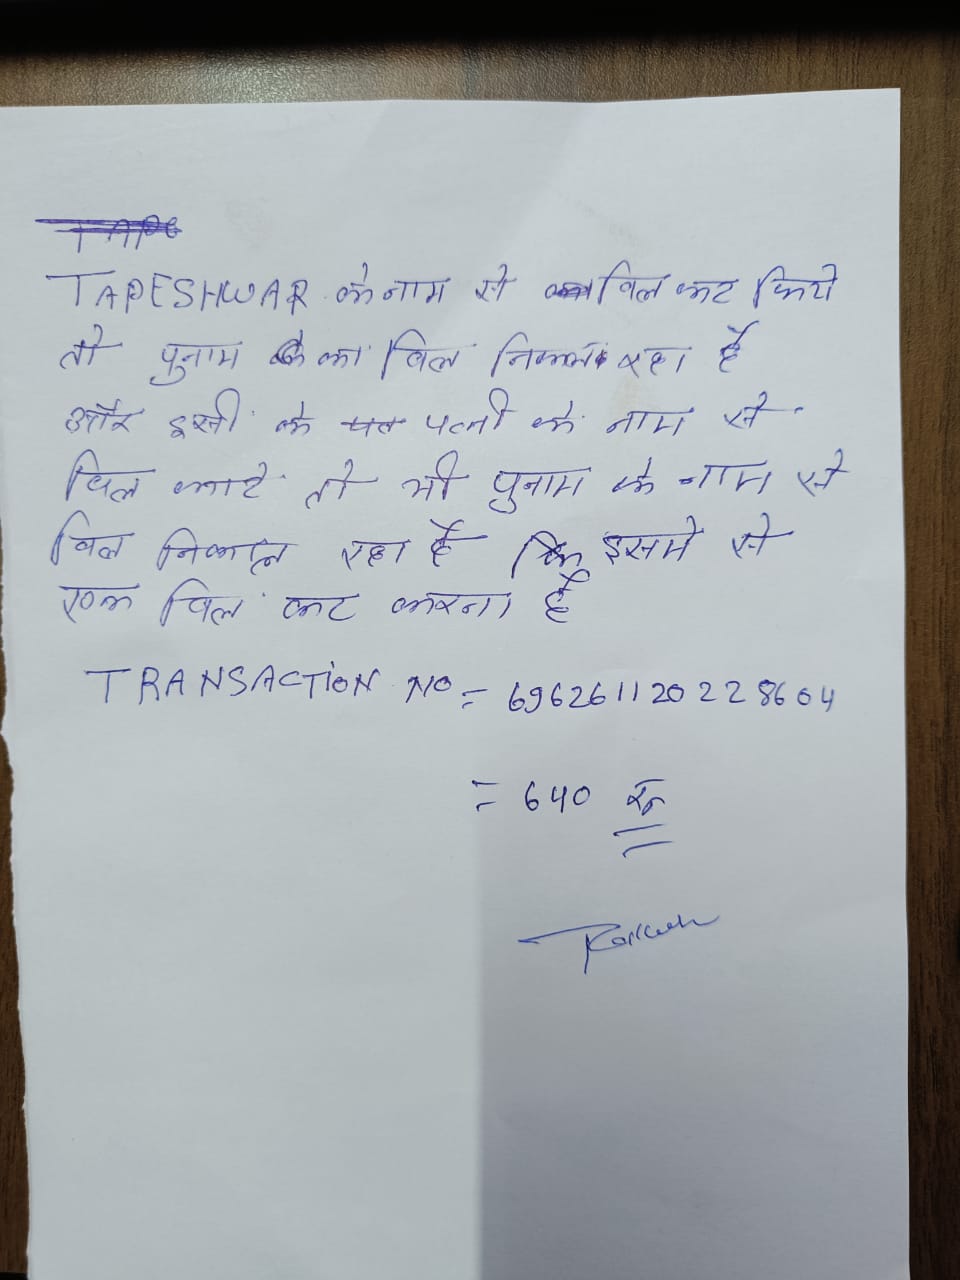 TAPE
TAPESHWAR के नाम से बिल कट किये
तो पुनाम का बिल निकल रहा है
और इसी के पत्नी के नाम से
बिल काटे तो भी पुनाम के नाम से
बिल निकाल रहा है इसमे से
एक बिल कट करना है
TRANSACTION NO = 696261120228604
= 640 रु